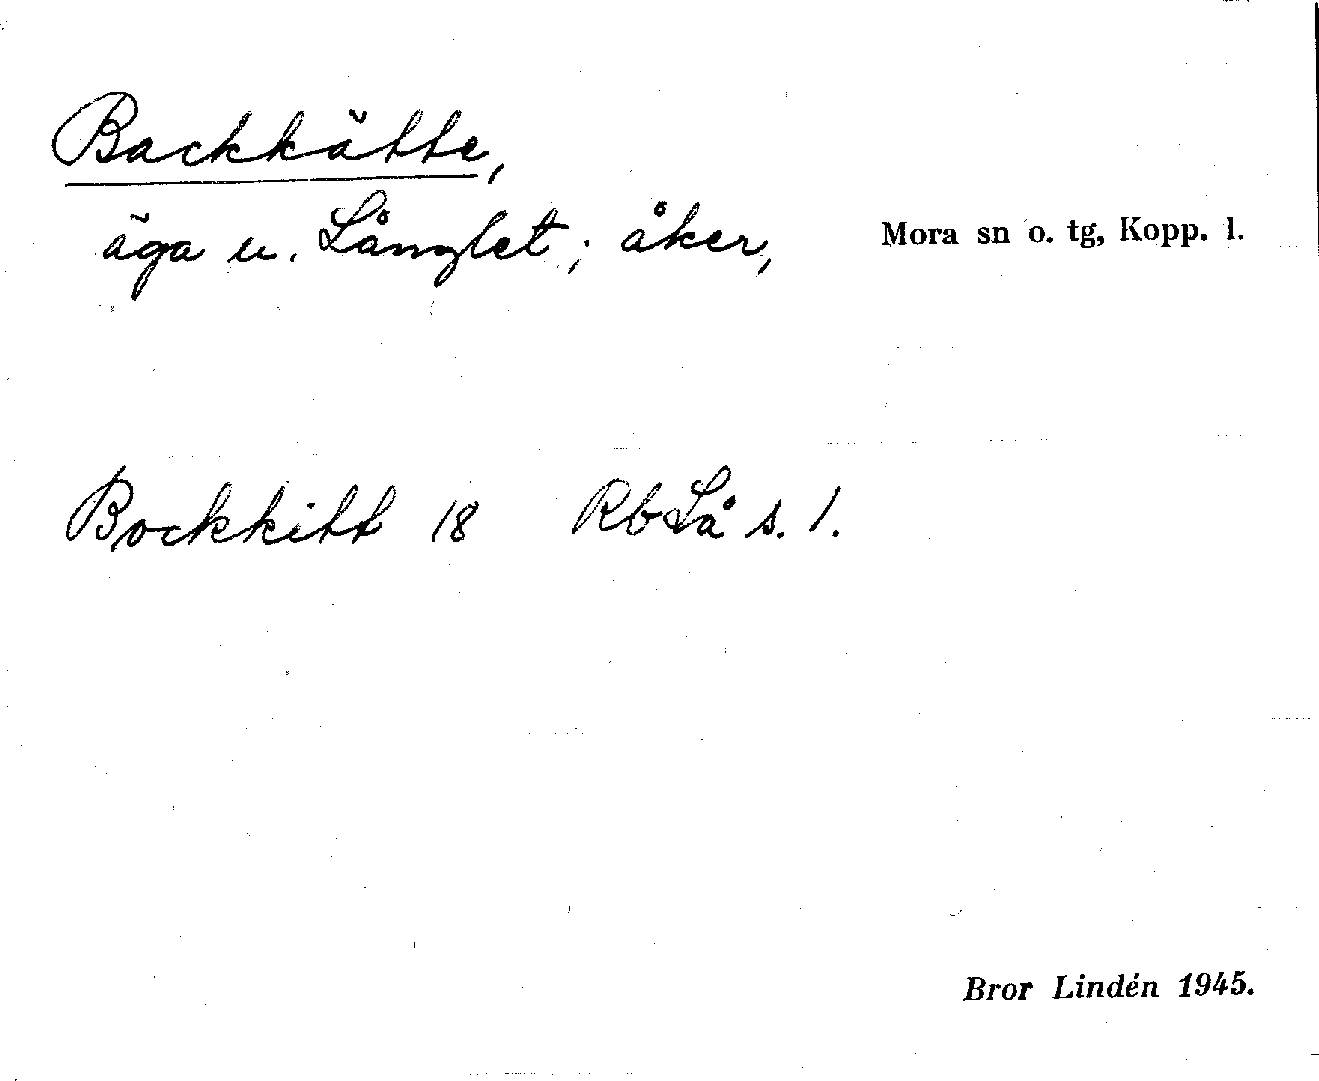 Backkätte,
äga u. Långlet; åker,
Mora sn o. tg, Kopp. l.
Bockkitt 18 RbLå s. 1.
Bror Lindén 1945.